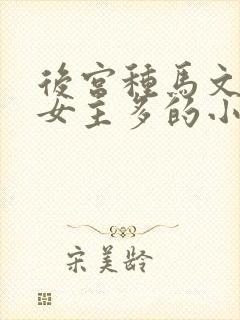 後宫種馬文
女主多的小
宋美龄